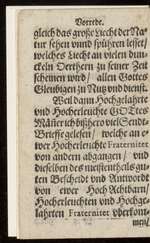 Vorrede.
gleich das große Liecht der Na-
tur sehen vnnd spühren lesset/
welches Liecht an vielen dun-
ckeln Oerthern zu seiner Zeit
scheinen wird/ allen Gottes
Gleubigen zu Nutz vnd dienst.
Weil dann Hochgelahrte
vnd Hocherleichte GOTtes
Männer ich bißhero viel Sende-
Briefe gelesen/ welche an e-
wer Hocherleuchte Fraternitet
von andern abgangen/ vnd
dieselben des meistentheils gu-
ten Bescheidt vnd Antwordt
von ewer Hoch Achtbarn/
Hocherleuchten vnd Hochge-
lahrten Fraternitet vberkom-
men/